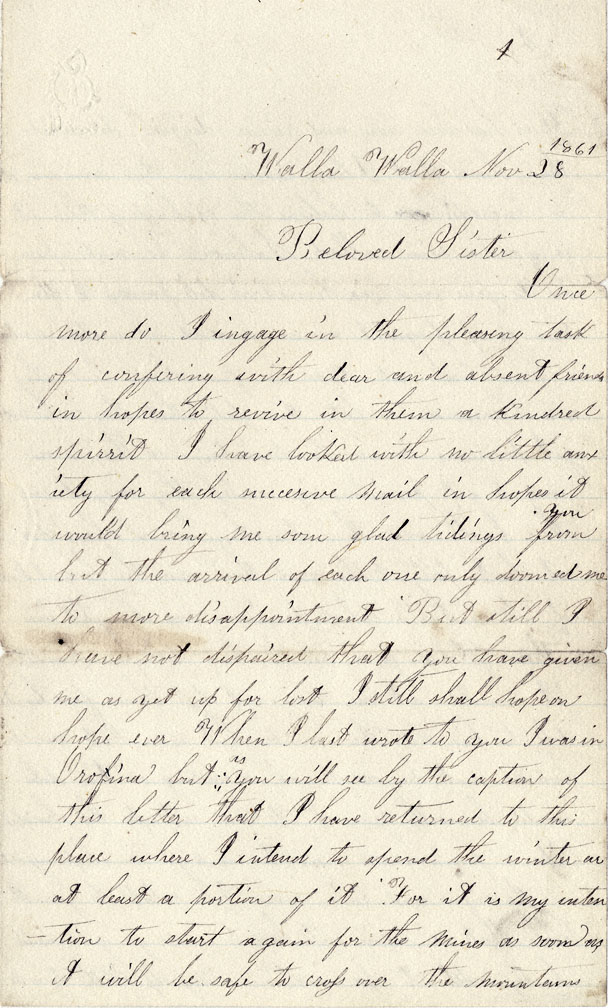 1
1861
Walla Walla Nov 28
Beloved Sister
Once
more do I ingage in the pleasing task
of confering with dear and absent friends
in hopes to revive in them a kindred
spirrit I have looked with no little anx
iety for each succesive mail in hopes it
would bring me som glad tidings from you
but the arrival of each one only doomed me
to more disappointment But still I
have not dispaired that you have given
me as yet up for lost I still shall hope on
hope ever When I last wrote to you I was in
Orofina but as you will see by the caption of
this letter that I have returned to this
place where I intend to spend the winter or
at least a portion of it For it is my inten
-tion to start again for the mines as soon as
it will be safe to cross over the mountains